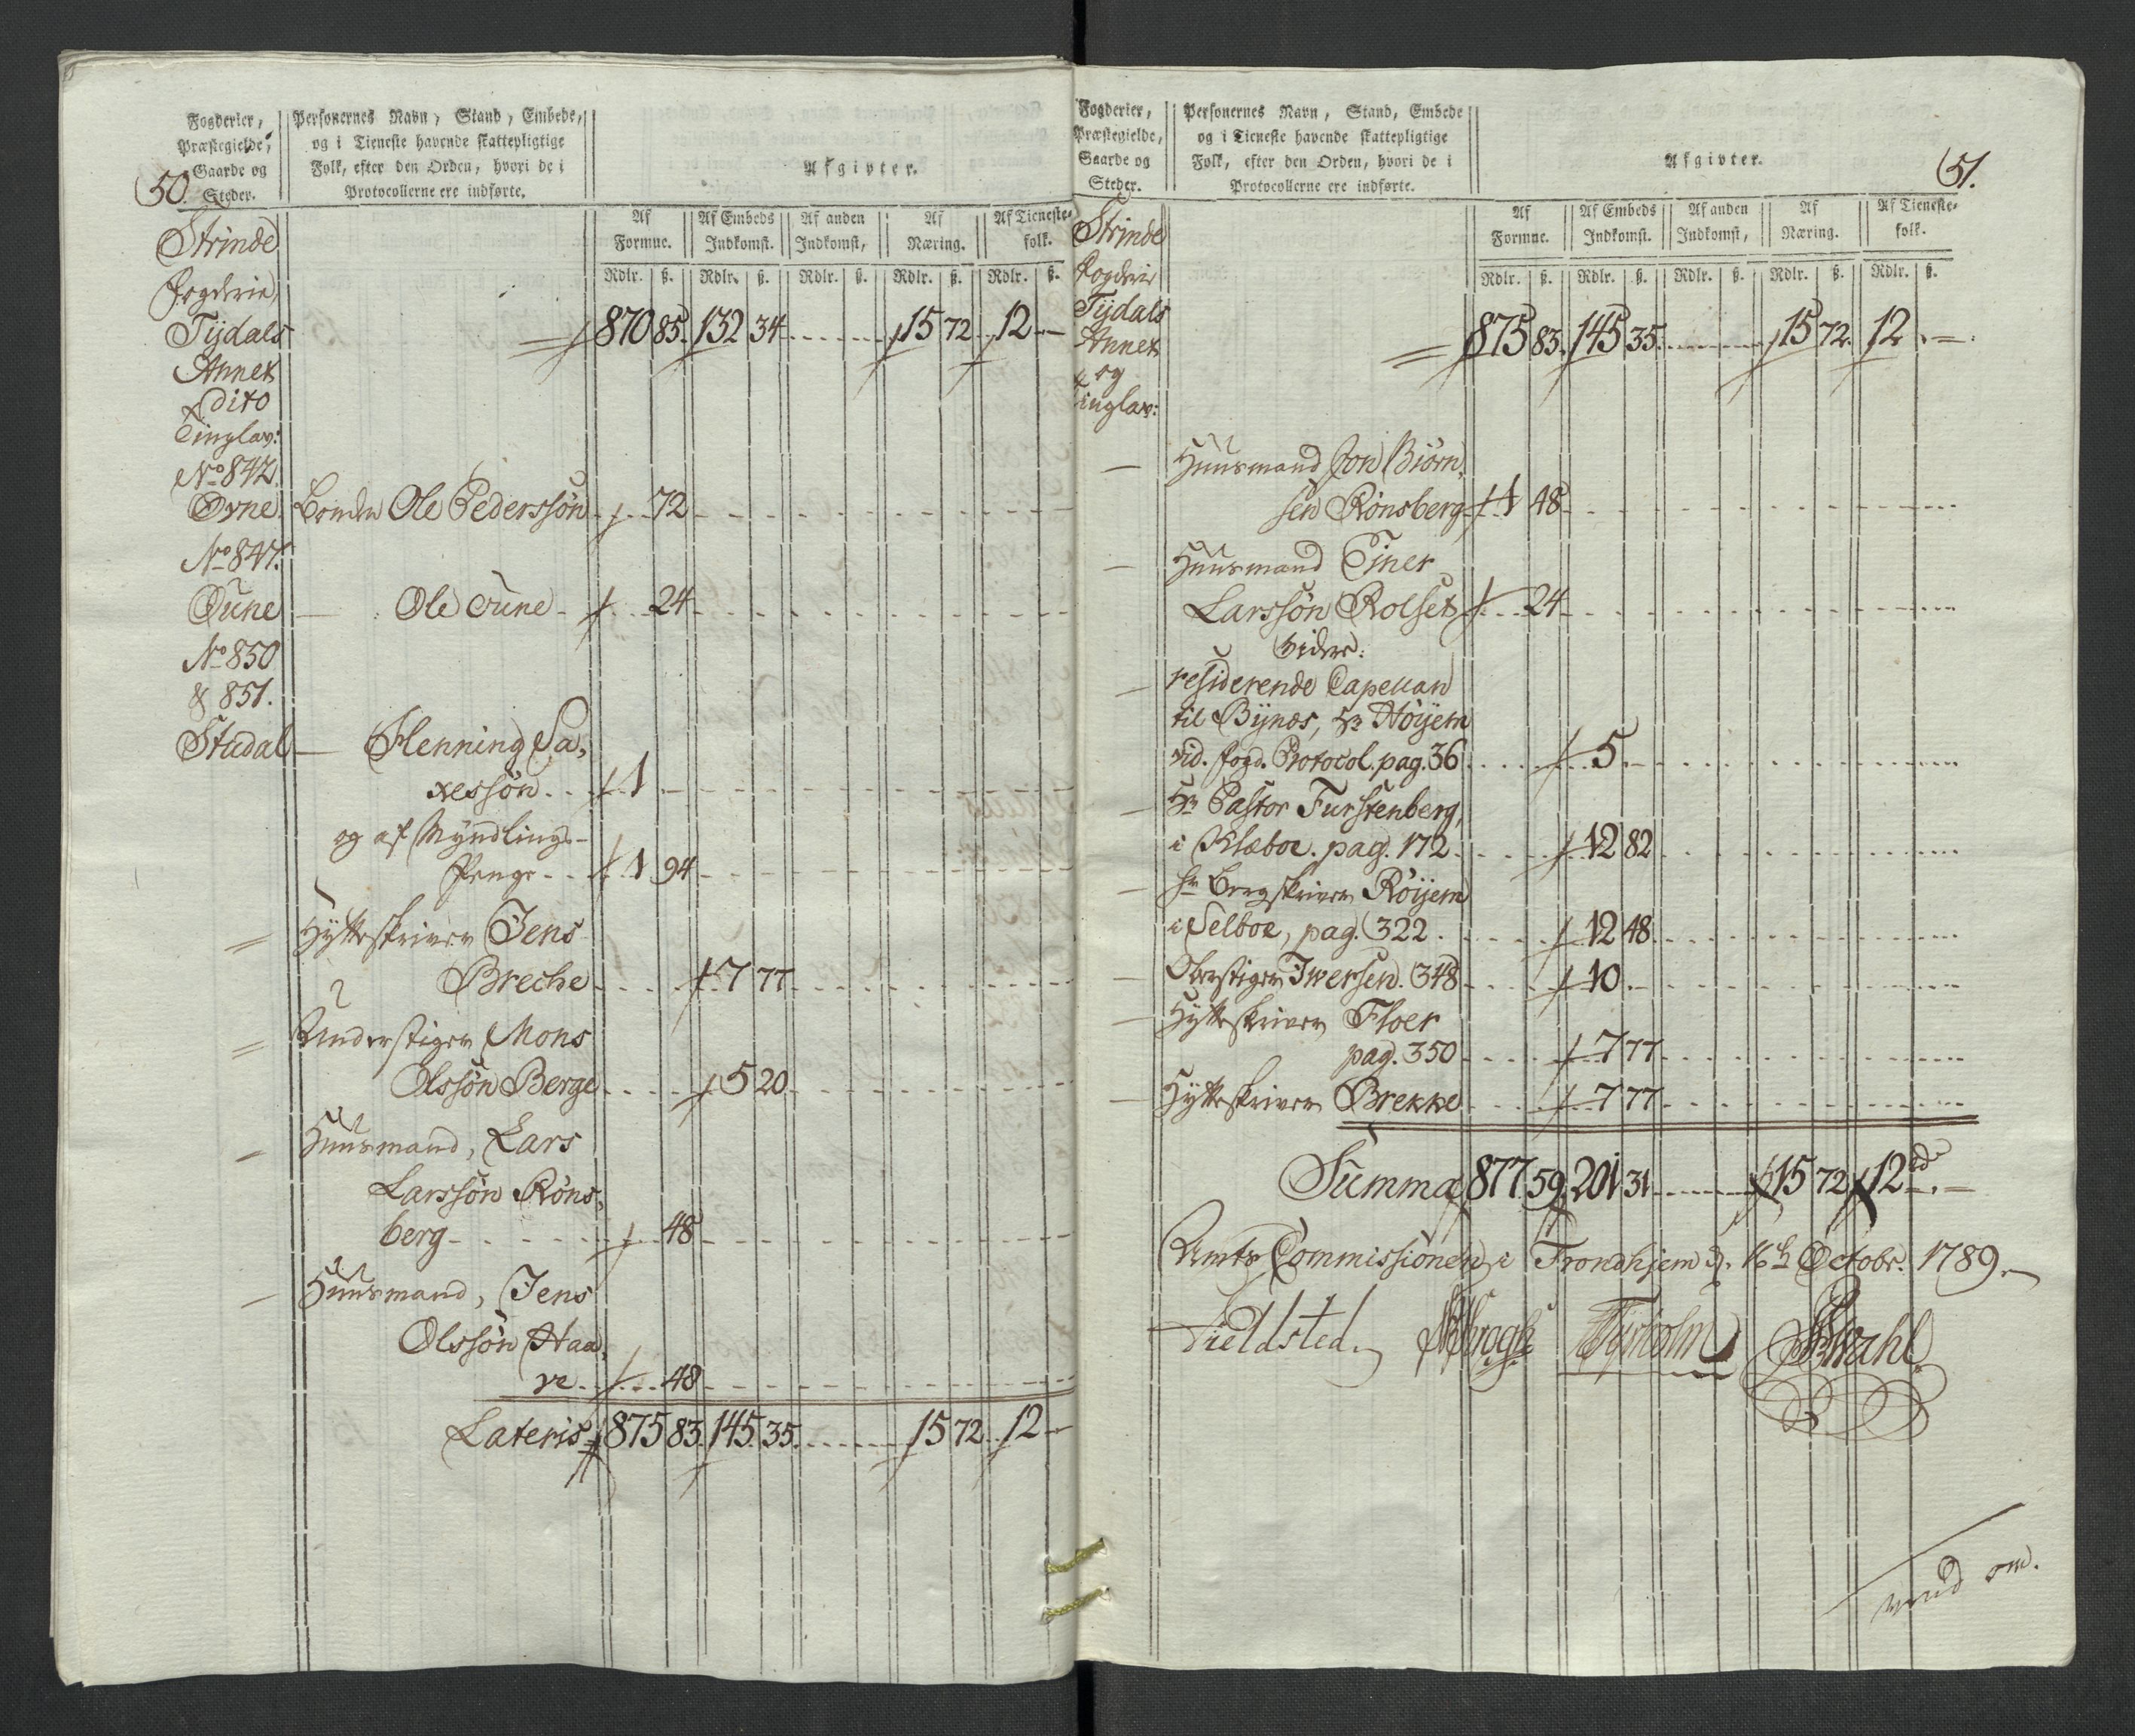 50.
Fogderier,
Præstegielde,
Gaarde og
Steder.
Personernes Navn, Stand, Embede,
og i Tieneste havende skattepligtige
Folk, efter den Orden, hvori de i
Protocollerne ere indførte.
Afgivter.
Af
Formue.
Af Embeds
Indkomst.
Af anden
Indkomst,
Af
Næring.
Af Tieneste-
folk.
Rdlr. ß. Rdlr. ß. Rdlr. ß. Rdlr. ß. Rdlr. ß.
Strinde
Fogderie
Tydals 870 85. 132 34 15 72 12 -
Annex
dito
Tinglav:
No 842.
Ovne Bonden Ole Pederssøn 72
No 847.
Oune - Ole Oune 24
No 850
& 851.
Studal - Henning Sa,
xessøn 1 -
og af Myndlings-
Penge 1 94
Hytteskriver Jens
Breche 7 77
Understiger Mons
Olssøn Berge 5 20
Huusmand, Lars
Larssøn Røns,
berg 48
Huusmand, Jens
Olssøn Haa,
re 48
Lateris 875 83. 145. 35. 15 72 12 -
51.
Fogderier,
Præstegielde,
Gaarde og
Steder.
Personernes Navn, Stand, Embede
og i Tieneste havende skattepligtige
Folk, efter den Orden, hvori de i
Protocollerne ere indførte.
Afgivter.
Af
Formue.
Af Embeds
Indkomst.
Af anden
Indkomst,
Af
Næring.
Af Tieneste-
folk.
Rdlr. ß. Rdlr. ß. Rdlr. ß. Rdlr. ß. Rdlr. ß.
Strinde
Fogderie
Tydals
Annex 875 83. 145 35. 15 72. 12 -
og
Tinglav:
Huusmand Jon Biørn,
sen Rønsberg 1 48
Huusmand Einer
Larssøn Rolset 24
Videre:
residerende Capellan
til Bynes, Hr Høyem
vid. Fogd. Protocol. pag. 36 5 -
Hr Pastor Furstenberg,
i Klæboe. pag. 172 12 82
Hr Bergskriver Røyem
i Selboe, pag. 322 12 48
Oberstiger Iwersen. 348 10 -
Hytteskriver Floer
pag. 350 7 77
Hytteskriver Brekke 7 77
Summa 877. 59. 201 31 15 72 12 -
Amts Commissionen i Trondhjem d. 16de Octobr. 1789.
Fieldsted. Krogh
vend om.